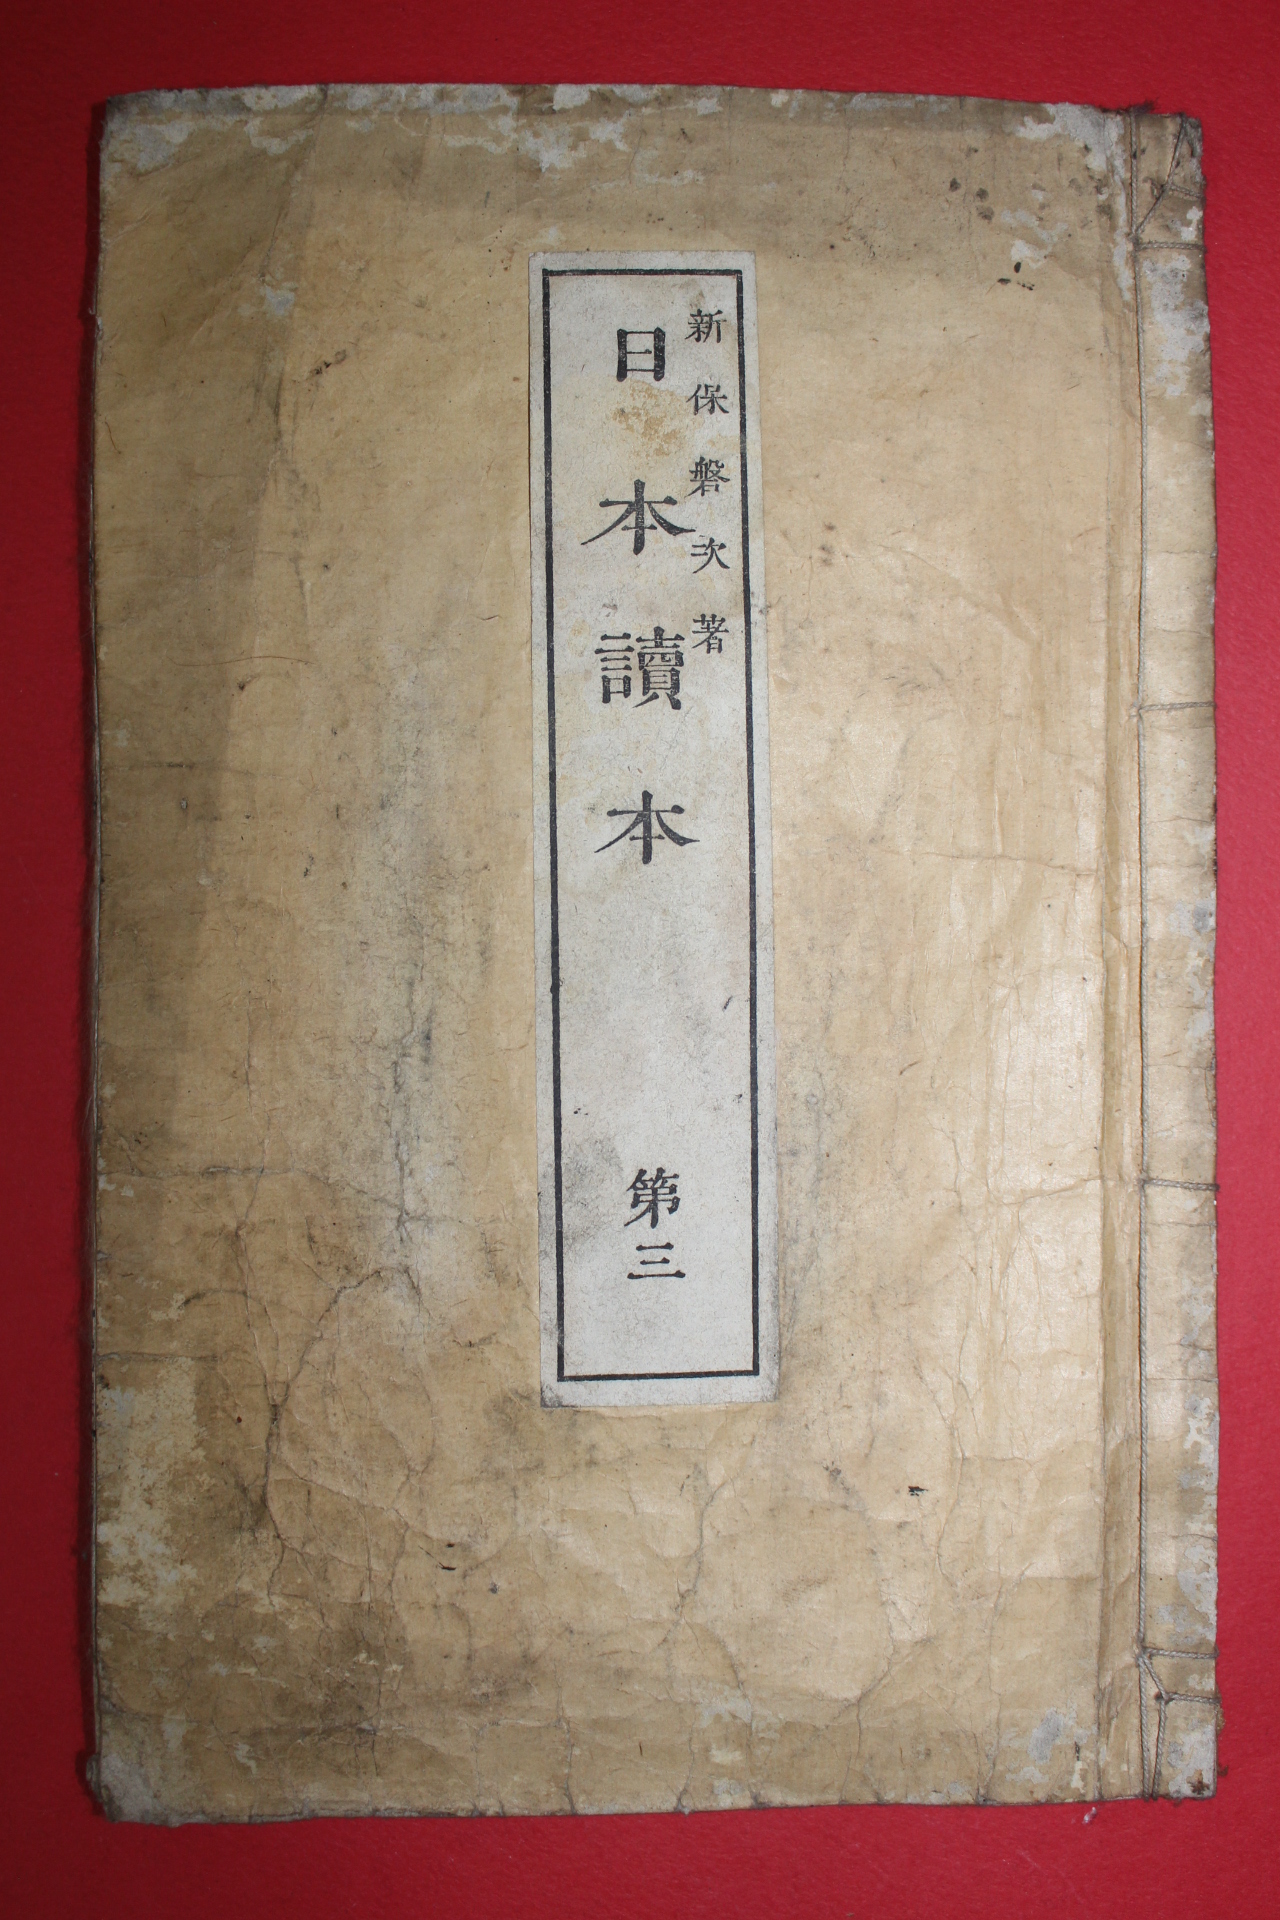 新保磐次著
日本讀本
第三